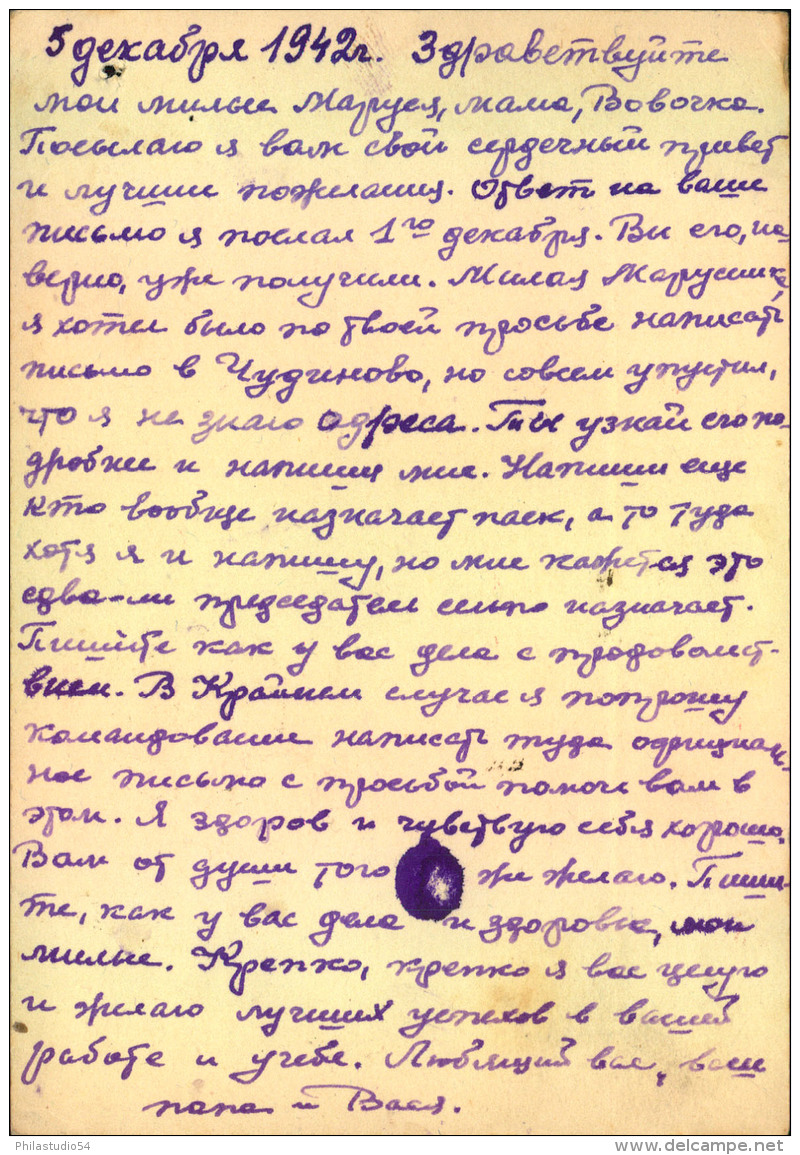 5 декабря 1942г. Здравствуйте
мои милые Маруся, мама, Вовочка.
Посылаю я вам свой сердечный привет
и лучшие пожелания. Ответ на ваше
письмо я послал 1го декабря. Ви его, на-
верно, уже получили. Милая Марусинка,
я хотел было по твоей просьбе написать
письмо в Чудиново, но совсем упустил,
что я не знаю адреса. Ты узнай его по-
дробнее и напиши мне. Напиши еще
кто вообще назначает паек, а то туда
хотя я и напишу, но мне кажется это
едва-ли председатель сельпо назначает.
Пишите как у вас дела с продовольст-
вием. В Крайнем случае я попрошу
командование написать туда официаль-
ное письмо с просьбой помочь вам в
этом. Я здоров и чувствую себя хорошо.
Вам от души того же желаю. Пиши-
те, как у вас дела и здоровье, мои
милые. Крепко, крепко я вас целую
и желаю лучших успехов в вашей
работе и учебе. Любящий вас, ваш
папа и Вася.
Philastudio54
www.delcampe.net